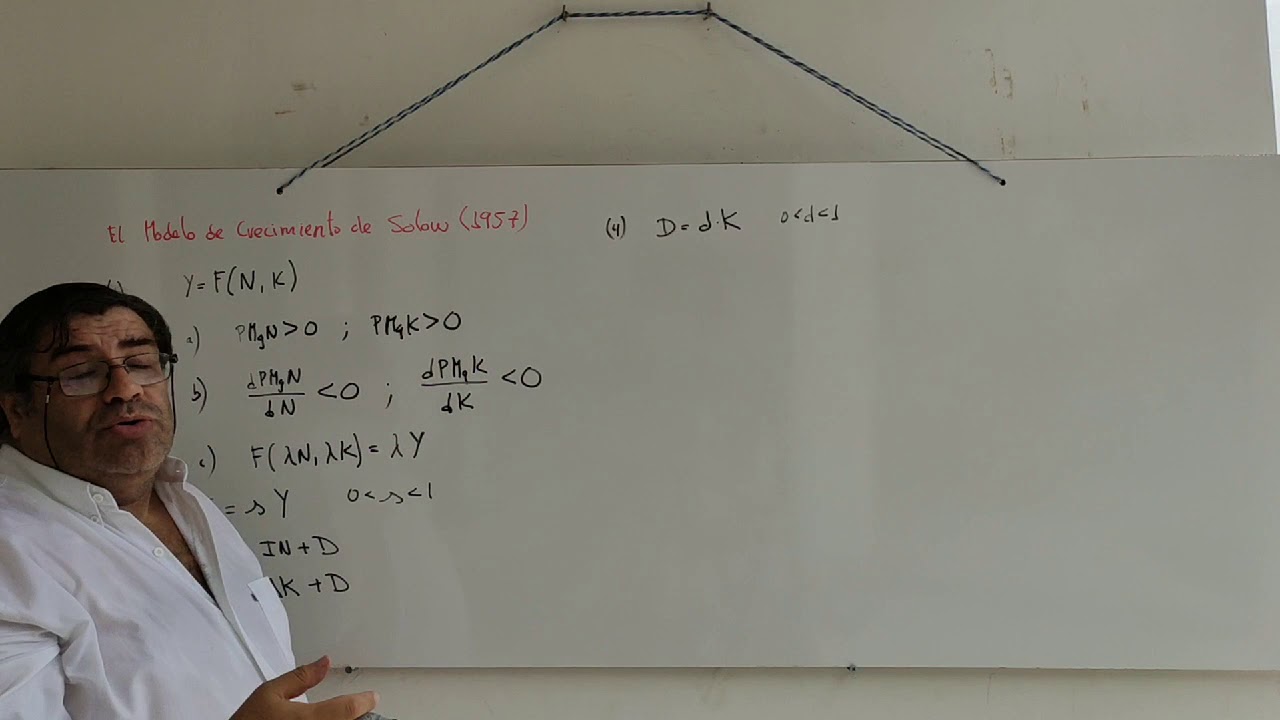 El Modelo de Crecimiento de Solow (1957)
Y = F(N, K)
a) PMgN > 0 ; PMgK > 0
b) dPMgN/dN < 0 ; dPMgK/dK < 0
c) F(λN, λK) = λY
= sY 0 < s < 1
IN + D
K + D
(4) D = d·K 0 < d < 1